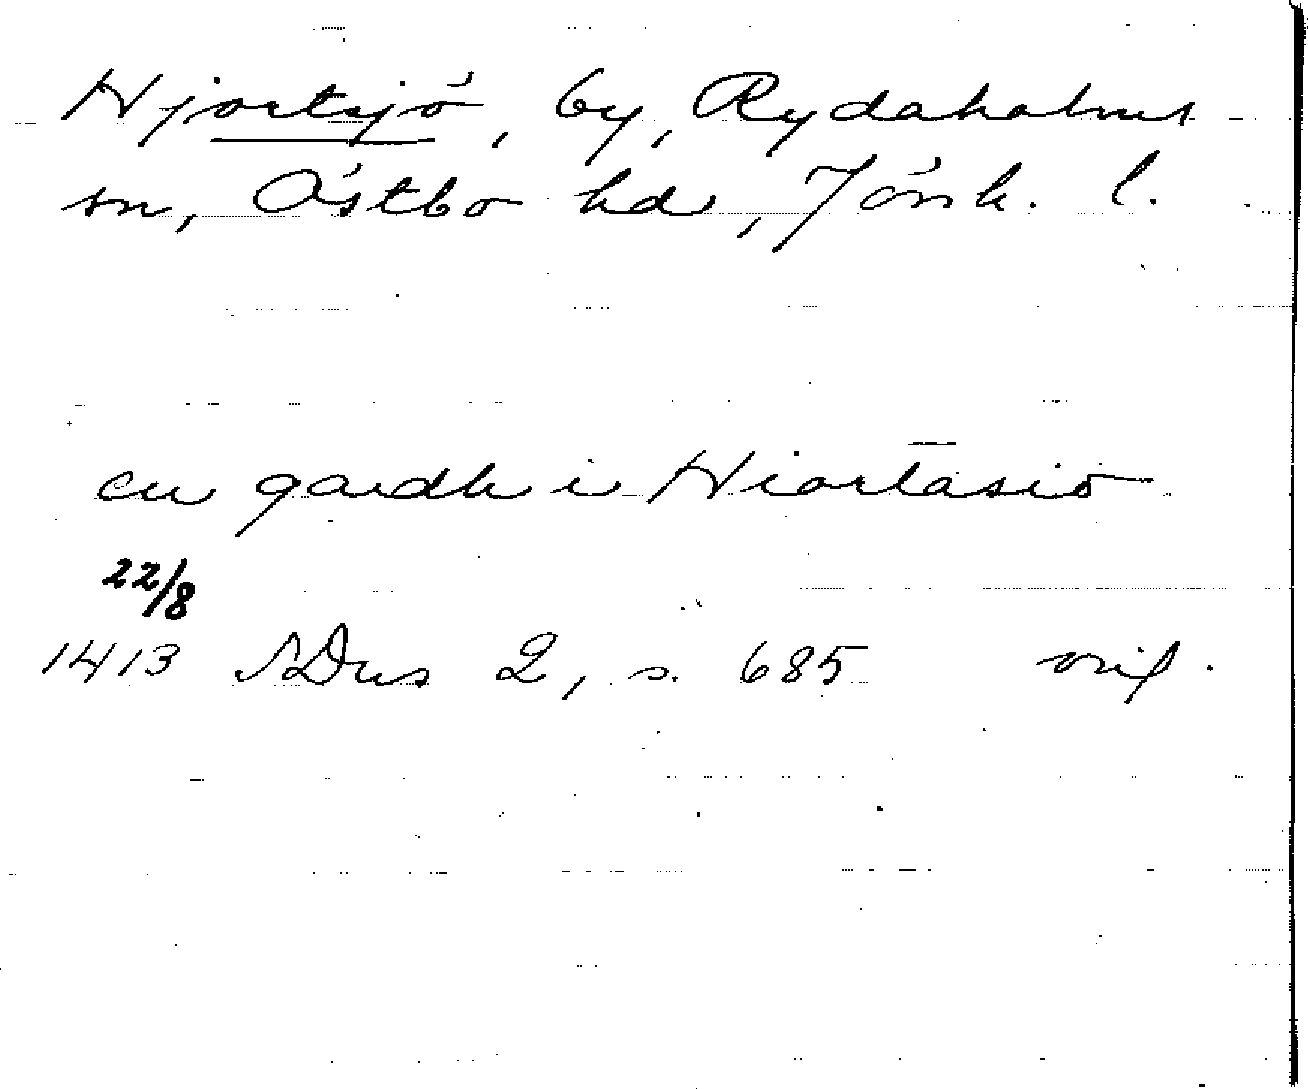 Hjortsjö, by, Rydaholms
sn, Östbo hd, Jönk. l.
en gardh i Hiortasio
22/8
1413 SDns 2, s. 685 orig.